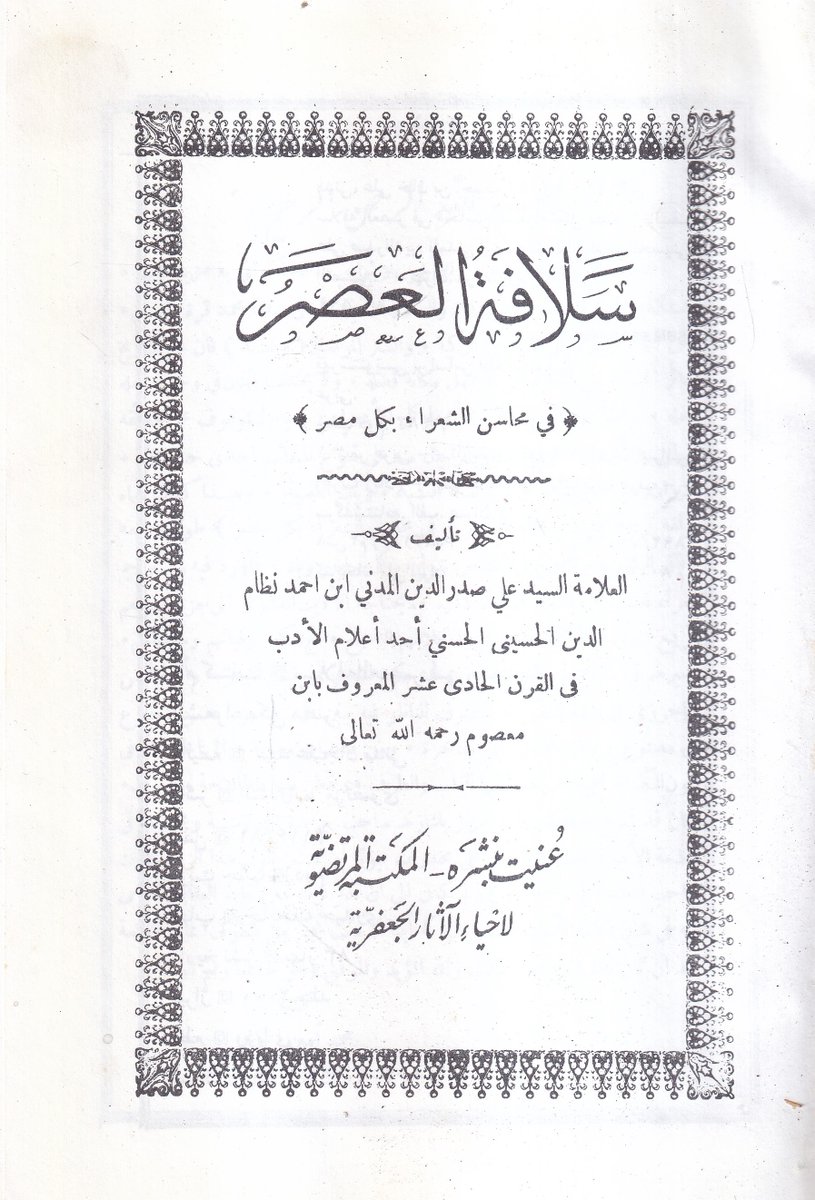 سَلَافَةُ العَصْرِ
﴿ في محاسن الشعراء بكل مصر ﴾
تأليف
العلامة السيد علي صدرالدين المدني ابن احمد نظام
الدين الحسيني الحسني أحد أعلام الأدب
فى القرن الحادى عشر المعروف بابن
معصوم رحمه الله تعالى
عُنيت بنشره - المكتبة المرتضويّة
لاحياء الآثار الجعفريّة